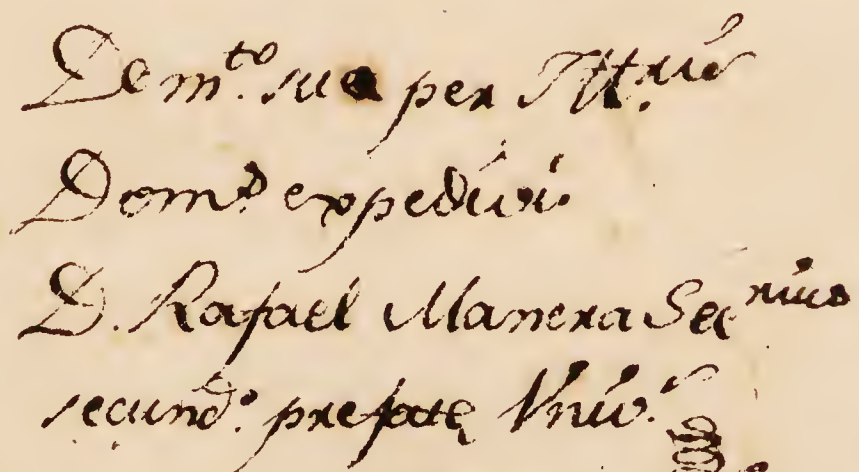 De m.to sue per Illtriss
Dom.o expedivi
D. Rafael Manera Sec rius
secund.o prefatę Univ.s